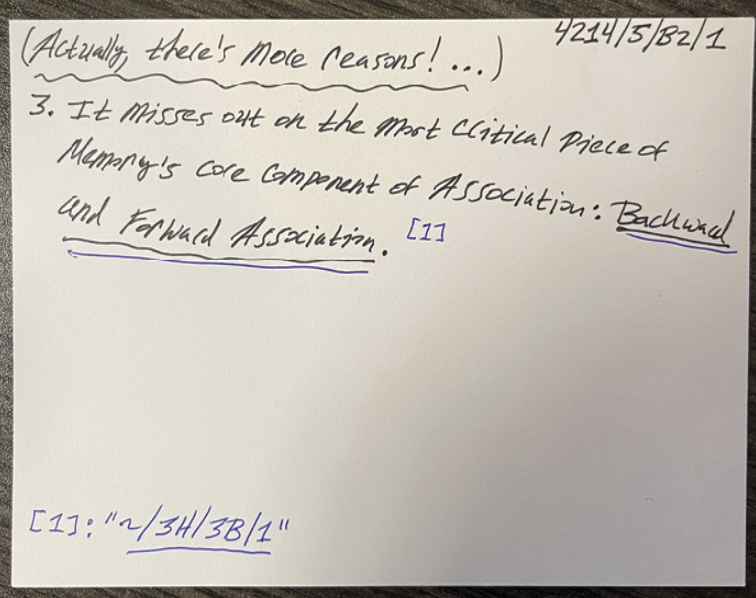 4214/5/B2/1
(Actually, there's more reasons! ...)
3. It misses out on the most critical piece of
Memory's core component of Association: Backward
and Forward Association. [1]
[1]: "~/3H/3B/1"